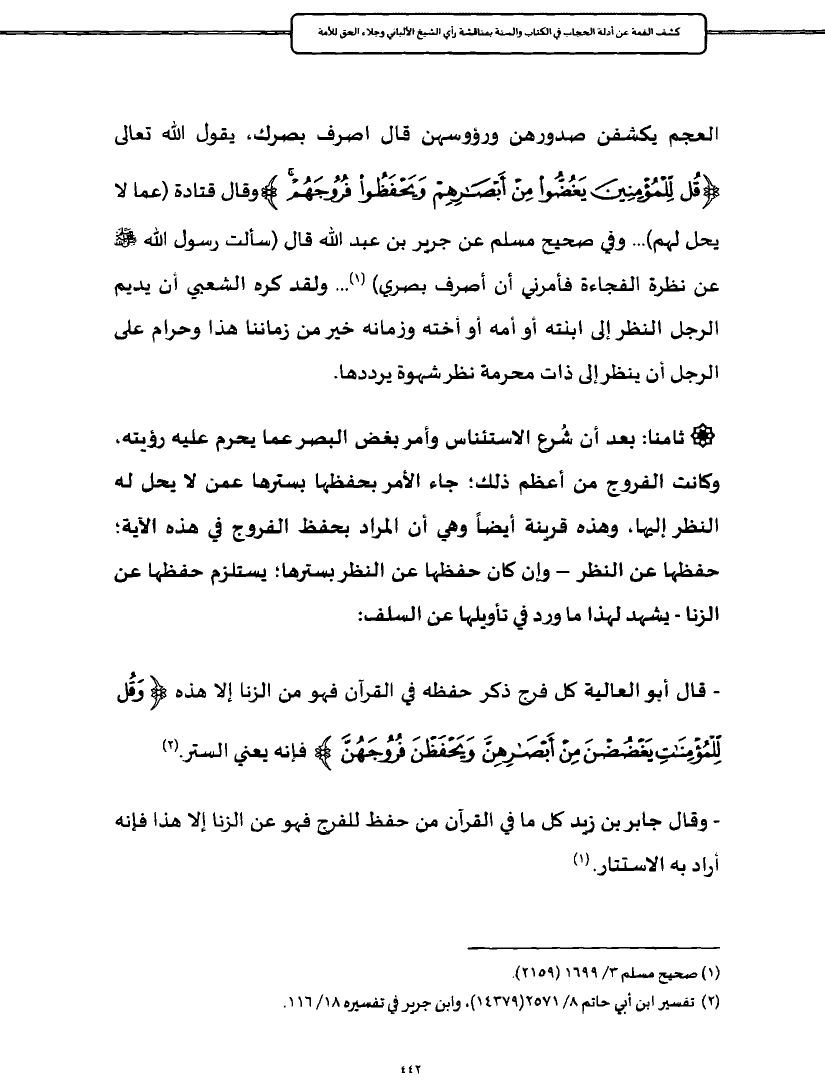 كشف الغمة عن أدلة الحجاب في الكتاب والسنة بمناقشة رأي الشيخ الألباني وجلاء الحق للأمة
العجم يكشفن صدورهن ورؤوسهن قال اصرف بصرك، يقول الله تعالى
﴿قُل لِّلْمُؤْمِنِينَ يَغُضُّوا۟ مِنْ أَبْصَـٰرِهِمْ وَيَحْفَظُوا۟ فُرُوجَهُمْ ۚ﴾ وقال قتادة (عما لا
يحل لهم)... وفي صحيح مسلم عن جرير بن عبد الله قال (سألت رسول الله ﷺ
عن نظرة الفجاءة فأمرني أن أصرف بصري) (١)... ولقد كره الشعبي أن يديم
الرجل النظر إلى ابنته أو أمه أو أخته وزمانه خير من زماننا هذا وحرام على
الرجل أن ينظر إلى ذات محرمة نظر شهوة يرددها.
ثامنا: بعد أن شُرع الاستئناس وأمر بغض البصر عما يحرم عليه رؤيته،
وكانت الفروج من أعظم ذلك؛ جاء الأمر بحفظها بسترها عمن لا يحل له
النظر إليها، وهذه قرينة أيضاً وهي أن المراد بحفظ الفروج في هذه الآية؛
حفظها عن النظر – وإن كان حفظها عن النظر بسترها؛ يستلزم حفظها عن
الزنا - يشهد لهذا ما ورد في تأويلها عن السلف:
- قال أبو العالية كل فرج ذكر حفظه في القرآن فهو من الزنا إلا هذه ﴿وَقُل
لِّلْمُؤْمِنَـٰتِ يَغْضُضْنَ مِنْ أَبْصَـٰرِهِنَّ وَيَحْفَظْنَ فُرُوجَهُنَّ﴾ فإنه يعني الستر.(٢)
- وقال جابر بن زيد كل ما في القرآن من حفظ للفرج فهو عن الزنا إلا هذا فإنه
أراد به الاستتار.(١)
(١) صحيح مسلم ٣/ ١٦٩٩ (٢١٥٩).
(٢) تفسير ابن أبي حاتم ٨/ ٢٥٧١(١٤٣٧٩)، وابن جرير في تفسيره ١٨/ ١١٦.
٤٤٢